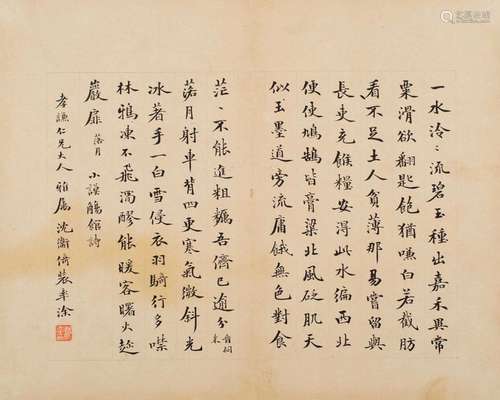 一水泠〻流碧玉種出嘉禾異常
粟滑欲翻匙飽猶嗛白若截肪
看不足土人貧薄那易嘗留與
長吏充餱糧安得此水徧西北
便使鳩鵠皆膏粱北風砭肌天
似玉墨道芳流庸餓無色對食
茫〻不能進粗糲吾儕已逾分 香稻米
落月射車背四更寒氣微斜光
冰著手一白雪侵衣羽騎行多噤
林鴉凍不飛濁醪能暖客曙火趂
巖扉 落月 小謨觴館詩
孝謙仁兄大人 雅屬 沈衛倚裝率塗